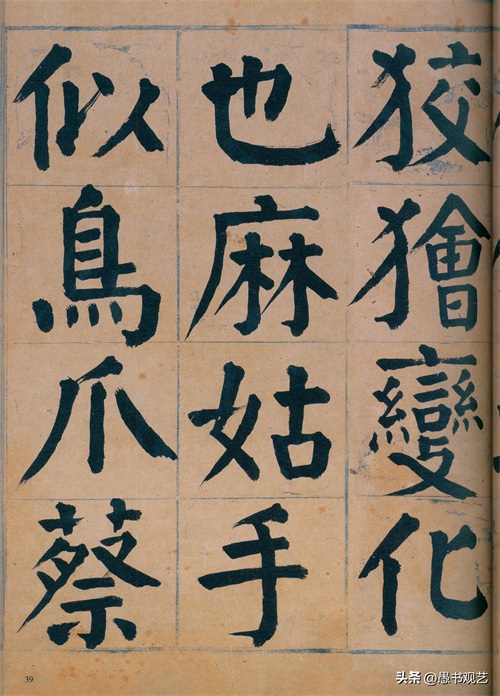 狡獪變化
也麻姑手
似鳥爪蔡
39
头条 @愚书观艺